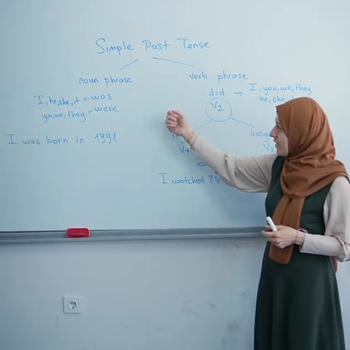 Simple Past Tense
noun phrase
verb phrase
did → I, you, we, they
he, she
I, he, she, it - was
you, we, they - were
V2
I was born in 1991
I watched TV